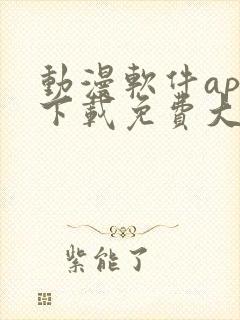 動漫軟件ap
下載免費大
紫能了